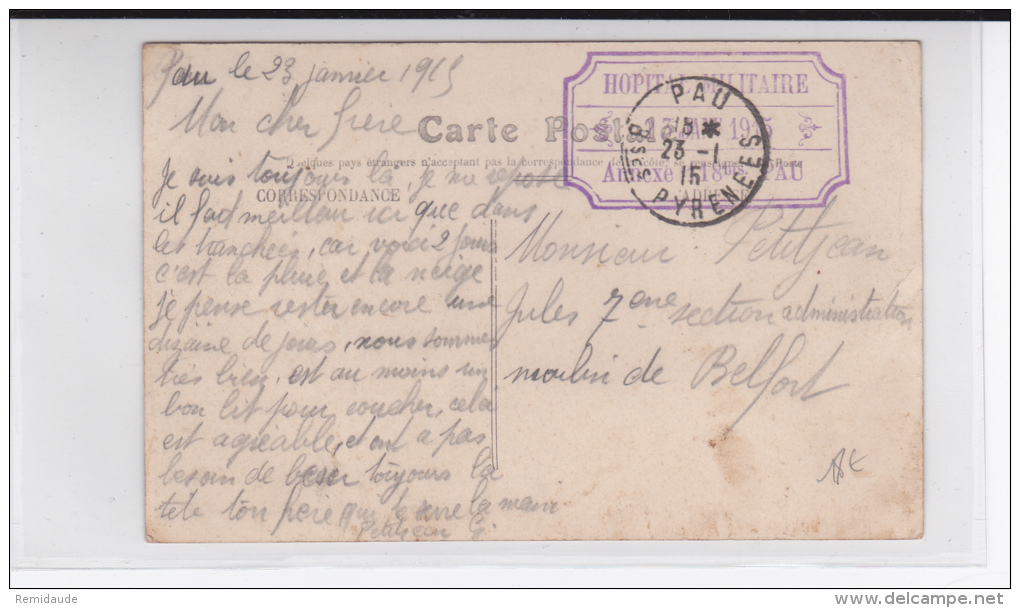 Pau le 23 janvier 1915
Mon cher frère
Carte Postale
HOPITAL MILITAIRE
23 JANV 1915
Annexe 18bis. PAU
PAU
15 *
23 -1
15
BSES PYRENEES
Quelques pays étrangers n'acceptant pas la correspondance de ce côté, se renseigner à la Poste
CORRESPONDANCE
ADRESSE
Je suis toujours là, je me repose
il fad meilleu ici que dans
les tranchées, car voici 2 jours
c'est la pluie et la neige
Je pense rester encore une
dizaine de jours, nous sommes
très bien, est au moins un
bon lit pour coucher, cela
est agréable, et ont a pas
besoin de baser toujours la
tête ton frère qui te serre la main
Petitjean G
Monsieur Petitjean
Jules 7eme section administration
moulin de Belfort
Remidaude
delcampe.net